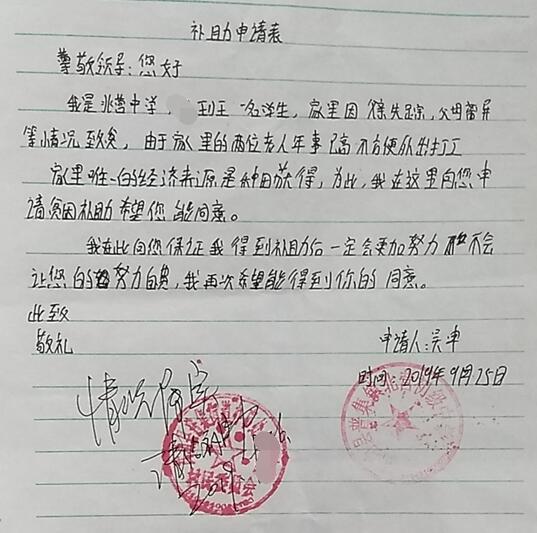 补助申请表
尊敬领导:您好
我是兆营中学, 到王一名学生,家里因 失踪,父母
等情况致贫,由于家里的两位老人年事已高不方便外出打工
家里唯一的经济来源是种田获得,为此,我在这里向您申
请贫困补助希望您能同意。
我在此向您保证我得到补助后一定会更加努力 不会
让您的努力白费,我再次希望能得到你的同意。
此致
敬礼
申请人:吴申
时间:2019年9月25日
情况属实
请给补助
2019